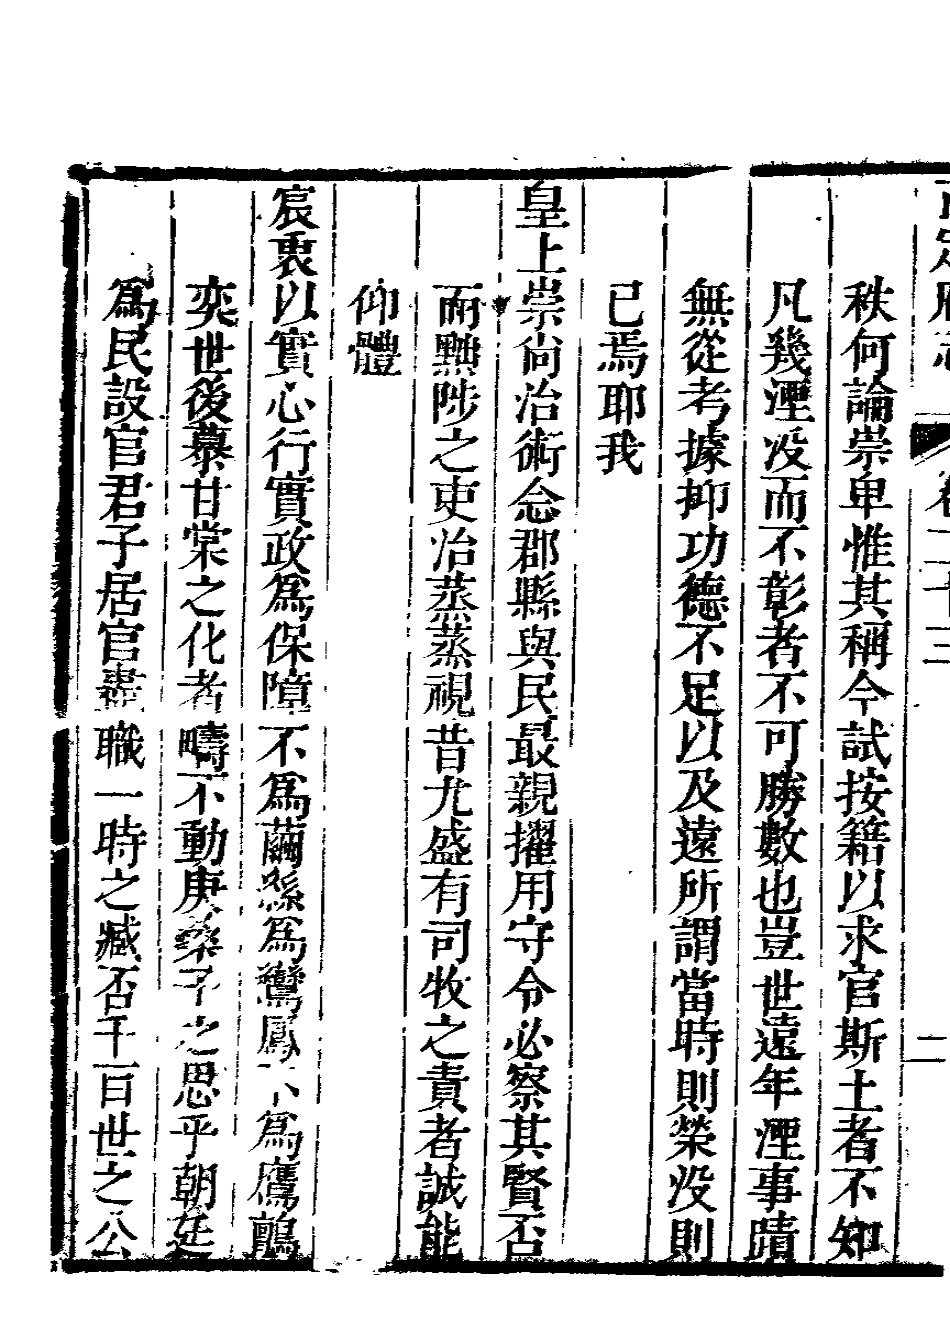 府志 卷二十三 二
秩何論崇卑惟其稱今試按籍以求官斯土者不知
凡幾湮没而不彰者不可勝數也豈世遠年湮事蹟
無從考據抑功德不足以及遠所謂當時則榮没則
已焉耶我
皇上崇尚治術念郡縣與民最親擢用守令必察其賢否
而黜陟之吏治蒸蒸視昔尤盛有司牧之責者誠能
仰體
宸衷以實心行實政爲保障不爲繭絲爲鸞鳳不爲鷹鸇
奕世後慕甘棠之化者疇不動庚桑子之思乎朝廷
爲民設官君子居官盡職一時之臧否千百世之公